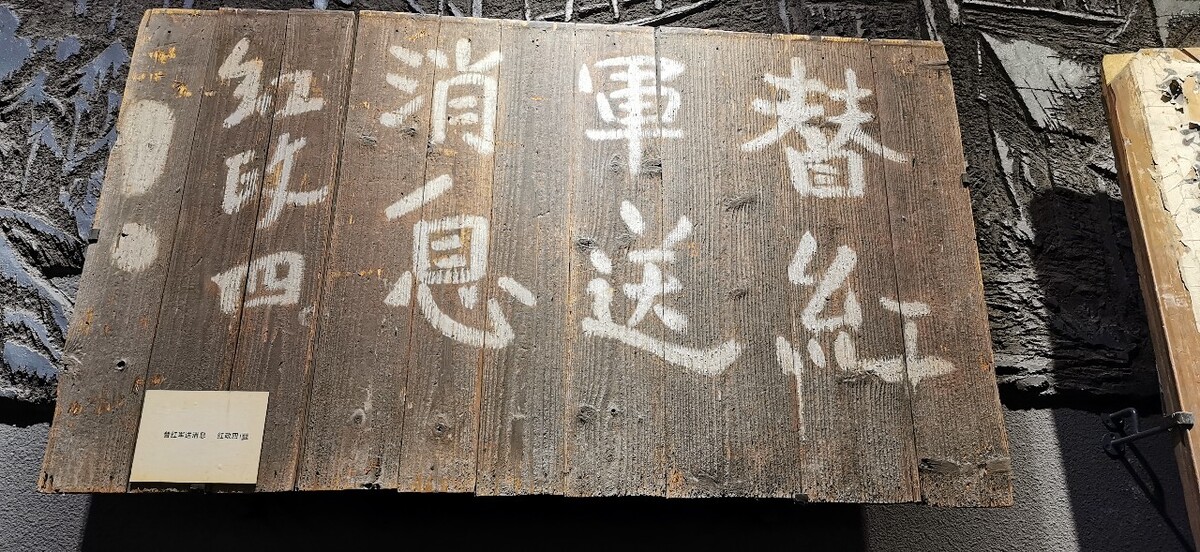 替紅
軍送
消息
紅政四
替红军送消息 红政四